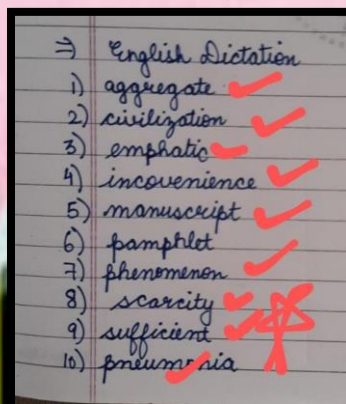 ⇒ English Dictation
1) aggregate
2) civilization
3) emphatic
4) incovenience
5) manuscript
6) pamphlet
7) phenomenon
8) scarcity
9) sufficient
10) pneumonia